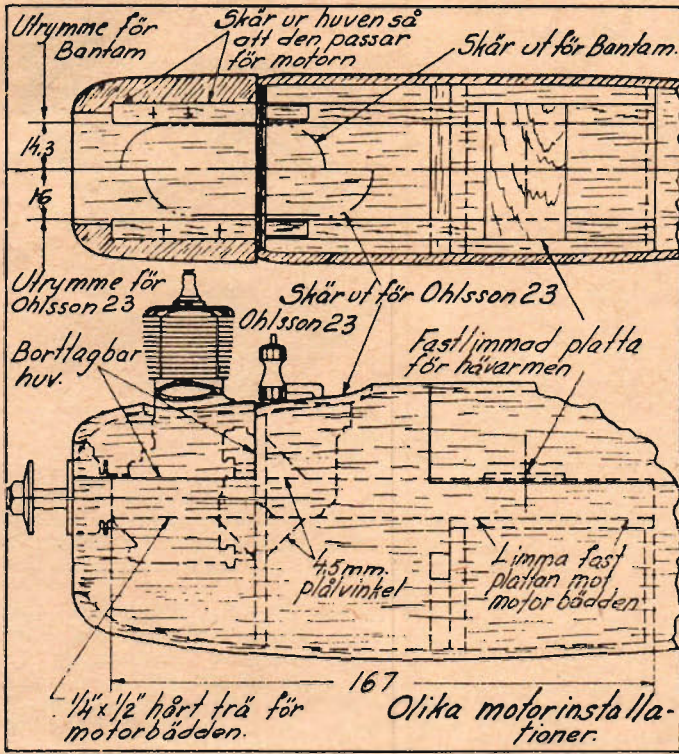 Utrymme för
Bantam
Skär ur huven så
att den passar
för motorn
Skär ut för Bantam.
14.3
16
Utrymme för
Ohlsson 23
Skär ut för Ohlsson 23
Ohlsson 23
Borttagbar
huv.
Fastlimmad platta
för hävarmen
4.5 mm.
plåtvinkel
Limma fast
plattan mot
motorbädden
167
1/4" x 1/2" hårt trä för
motorbädden.
Olika motorinstalla-
tioner.